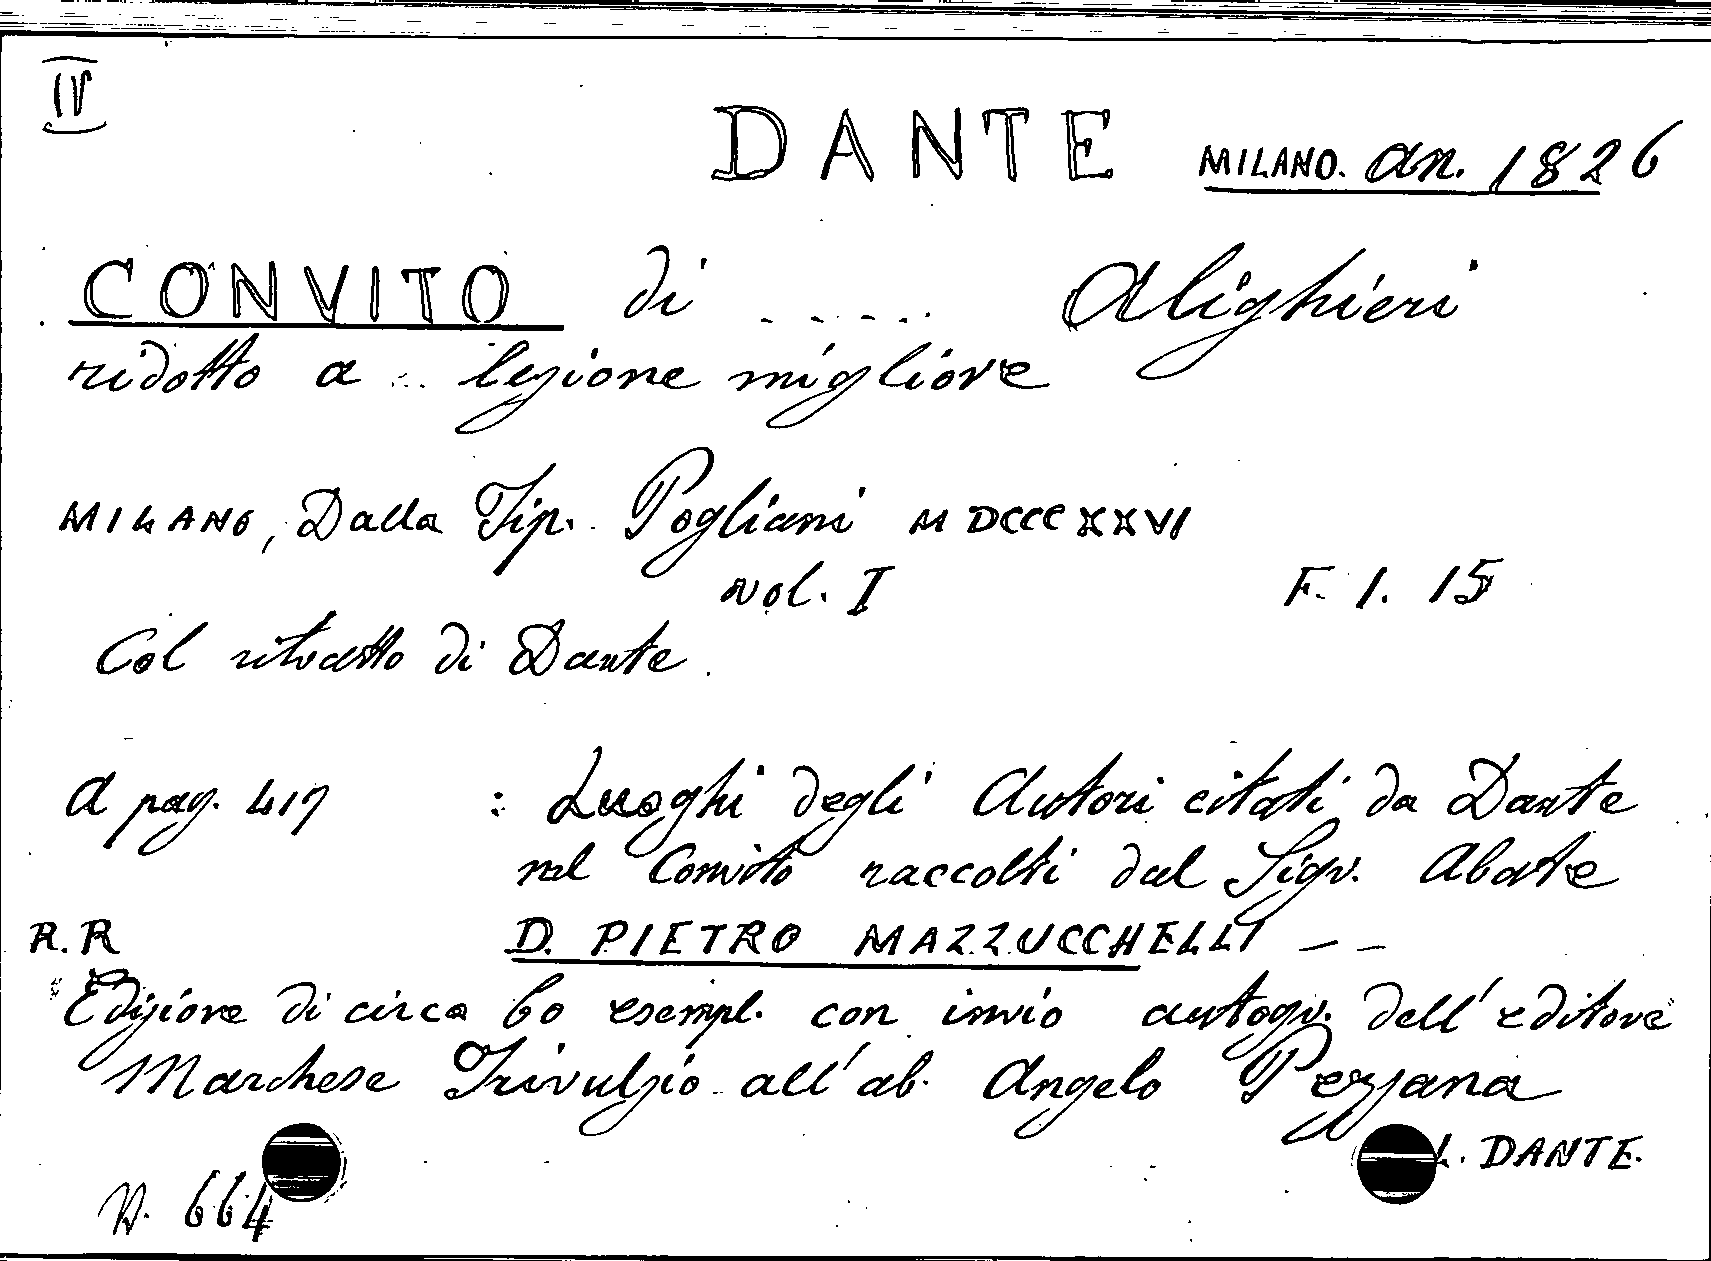 IV
DANTE MILANO. An. 1826
CONVITO di ..... Alighieri
ridotto a .. lezione migliore
MILANO, Dalla Tip. Pogliani MDCCCXXVI
vol. I F. 1. 15
Col ritratto di Dante.
A pag. 417 : Luoghi degli Autori citati da Dante
nel Convito raccolti dal Sigr. Abate
R. R D. PIETRO MAZZUCCHELLI – –
Edizione di circa 60 esempl. con invio autogr. dell' editore
Marchese Trivulzio all' ab. Angelo Pezzana
L. DANTE.
N. 664